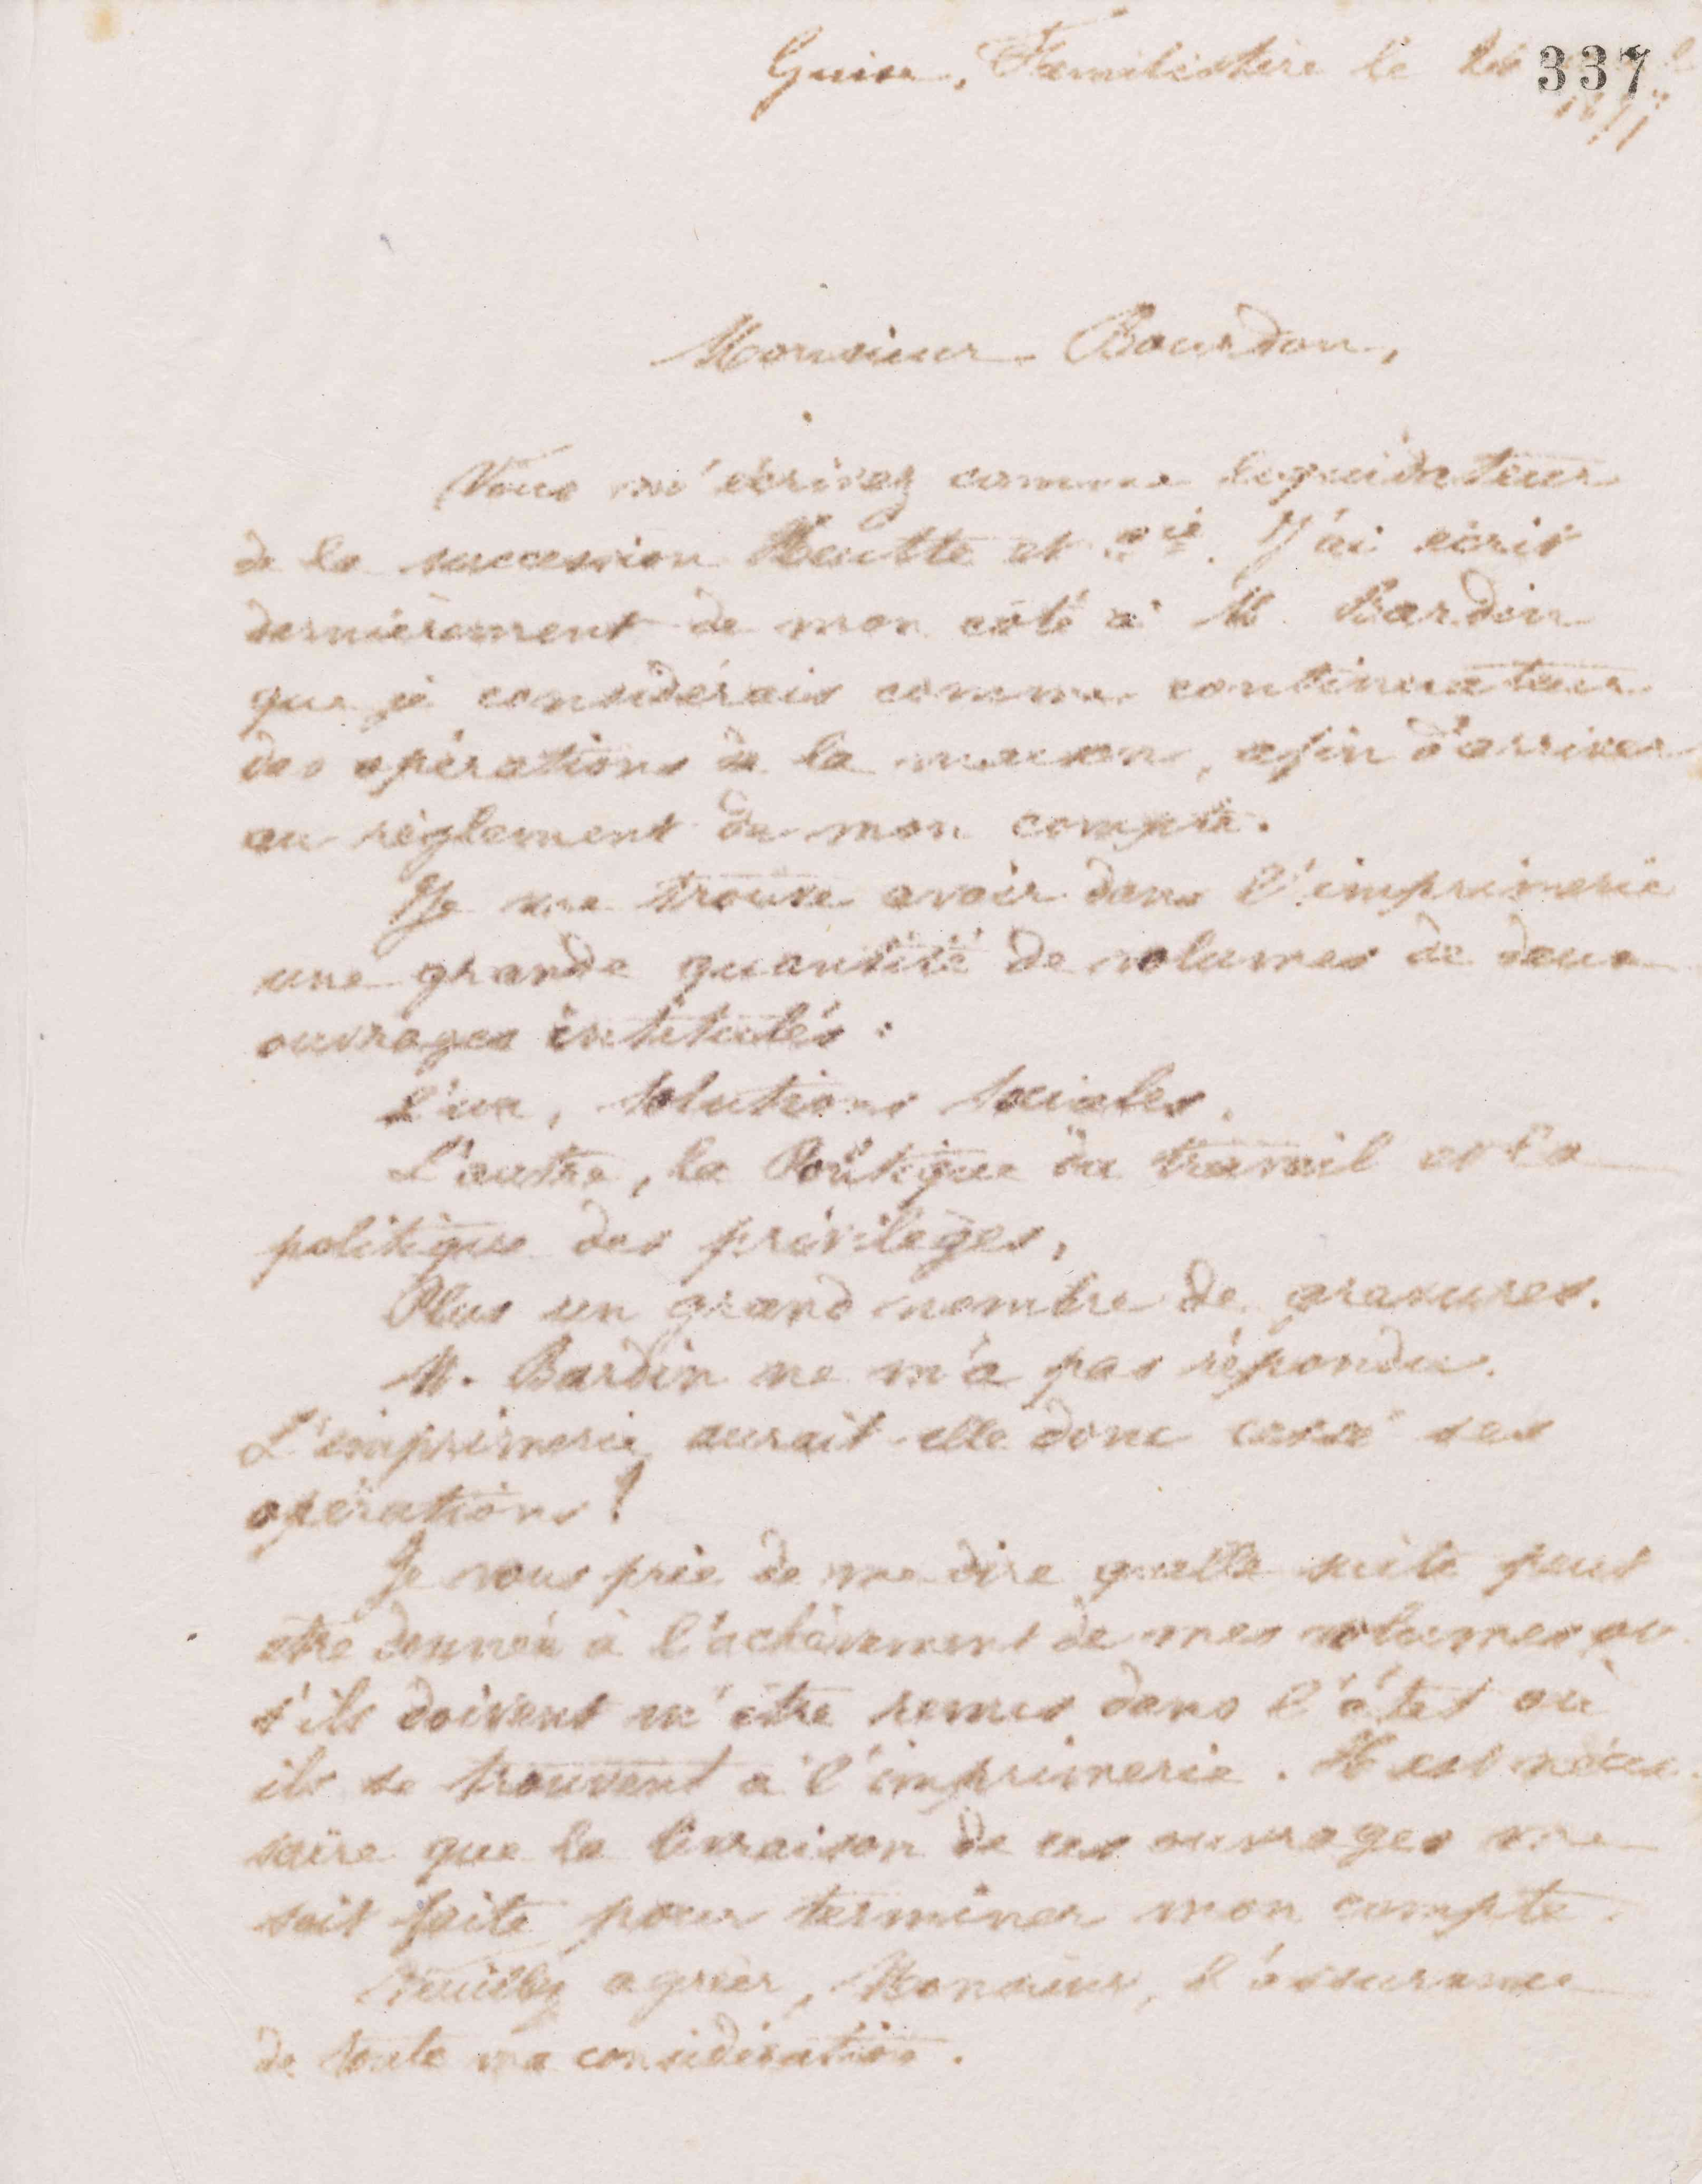 Guise, Familistère le
337
Monsieur Bourdon,
Vous m'écrivez comme liquidateur
de la succession Heutte et Cie. J'ai écrit
dernièrement de mon côté à M. Bardin
que je considérais comme continuateur
des opérations de la maison, afin d'arriver
au règlement de mon compte.
Je me trouve avoir dans l'imprimerie
une grande quantité de volumes de deux
ouvrages intitulés :
L'un, Solutions Sociales.
L'autre, la Politique du travail et la
politique des privilèges.
Plus un grand nombre de gravures.
M. Bardin ne m'a pas répondu.
L'imprimerie aurait elle donc cessé ses
opérations ?
Je vous prie de me dire quelle suite peut
être donnée à l'achèvement de mes volumes ou
s'ils doivent m'être remis dans l'état où
ils se trouvent à l'imprimerie. Il est néces-
saire que la livraison de ces ouvrages me
soit faite pour terminer mon compte.
Veuillez agréer, Monsieur, l'assurance
de toute ma considération.